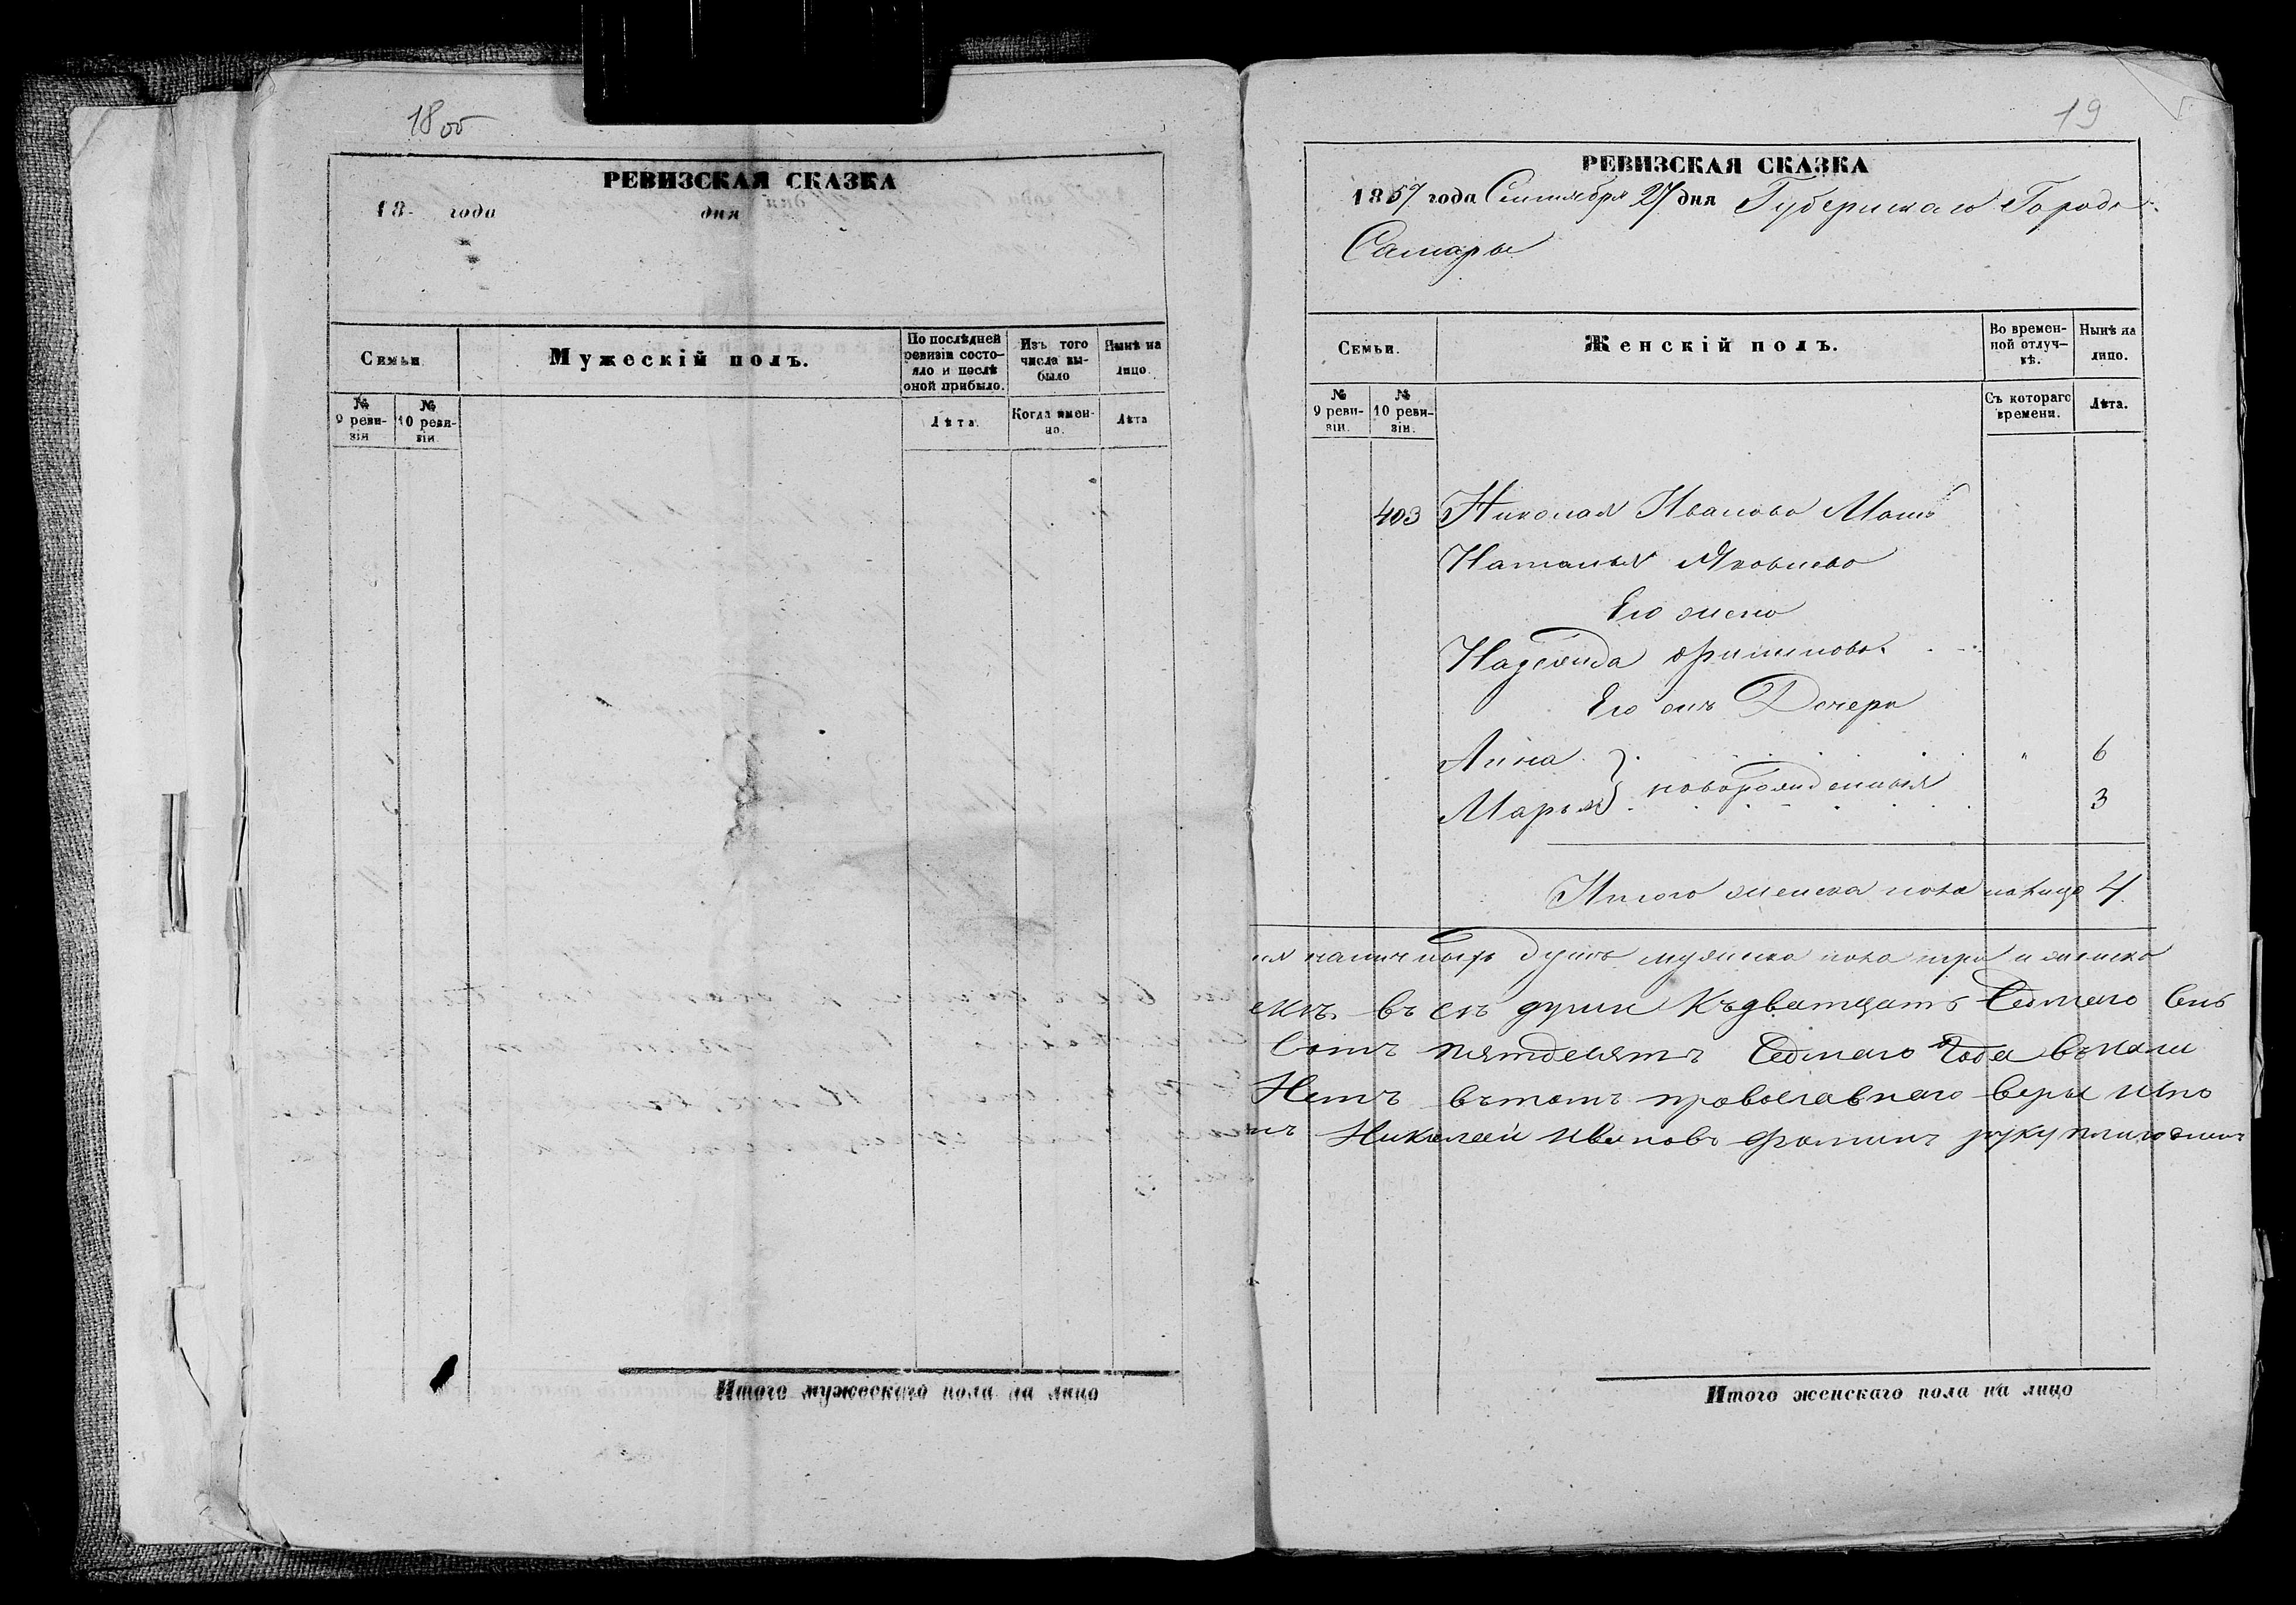 18об
РЕВИЗСКАЯ СКАЗКА
18 года дня
Семьи
Мужескій полъ.
По послѣдней ревизіи состояло и послѣ оной прибыло.
Изъ того числа выбыло
Нынѣ на лицо.
№ 9 ревизіи
№ 10 ревизіи
Лѣта.
Когда именно.
Лѣта
Итого мужескаго пола на лицо
19
РЕВИЗСКАЯ СКАЗКА
1857 года Сентября 27 дня Губернскаго Города
Самары
Семьи.
Женскій полъ.
Во временной отлучкѣ.
Нынѣ на лицо.
№ 9 ревизіи.
№ 10 ревизіи.
Съ котораго времени.
Лѣта.
403 Николая Иванова
Наталья Яковлева
Его жена
Надежда
Его Дочери
Анна " 6
Марья } новорожденныя 3
Итого женска пола налицо 4
душъ мужска пола три и женска
въ ея души Къдватцать Седмаго Сен
Сотъ пятдесятъ Седмаго Года
Нетъ вътомъ православнаго веры
Николай Ивановъ Фоминъ руку
Итого женскаго пола на лицо